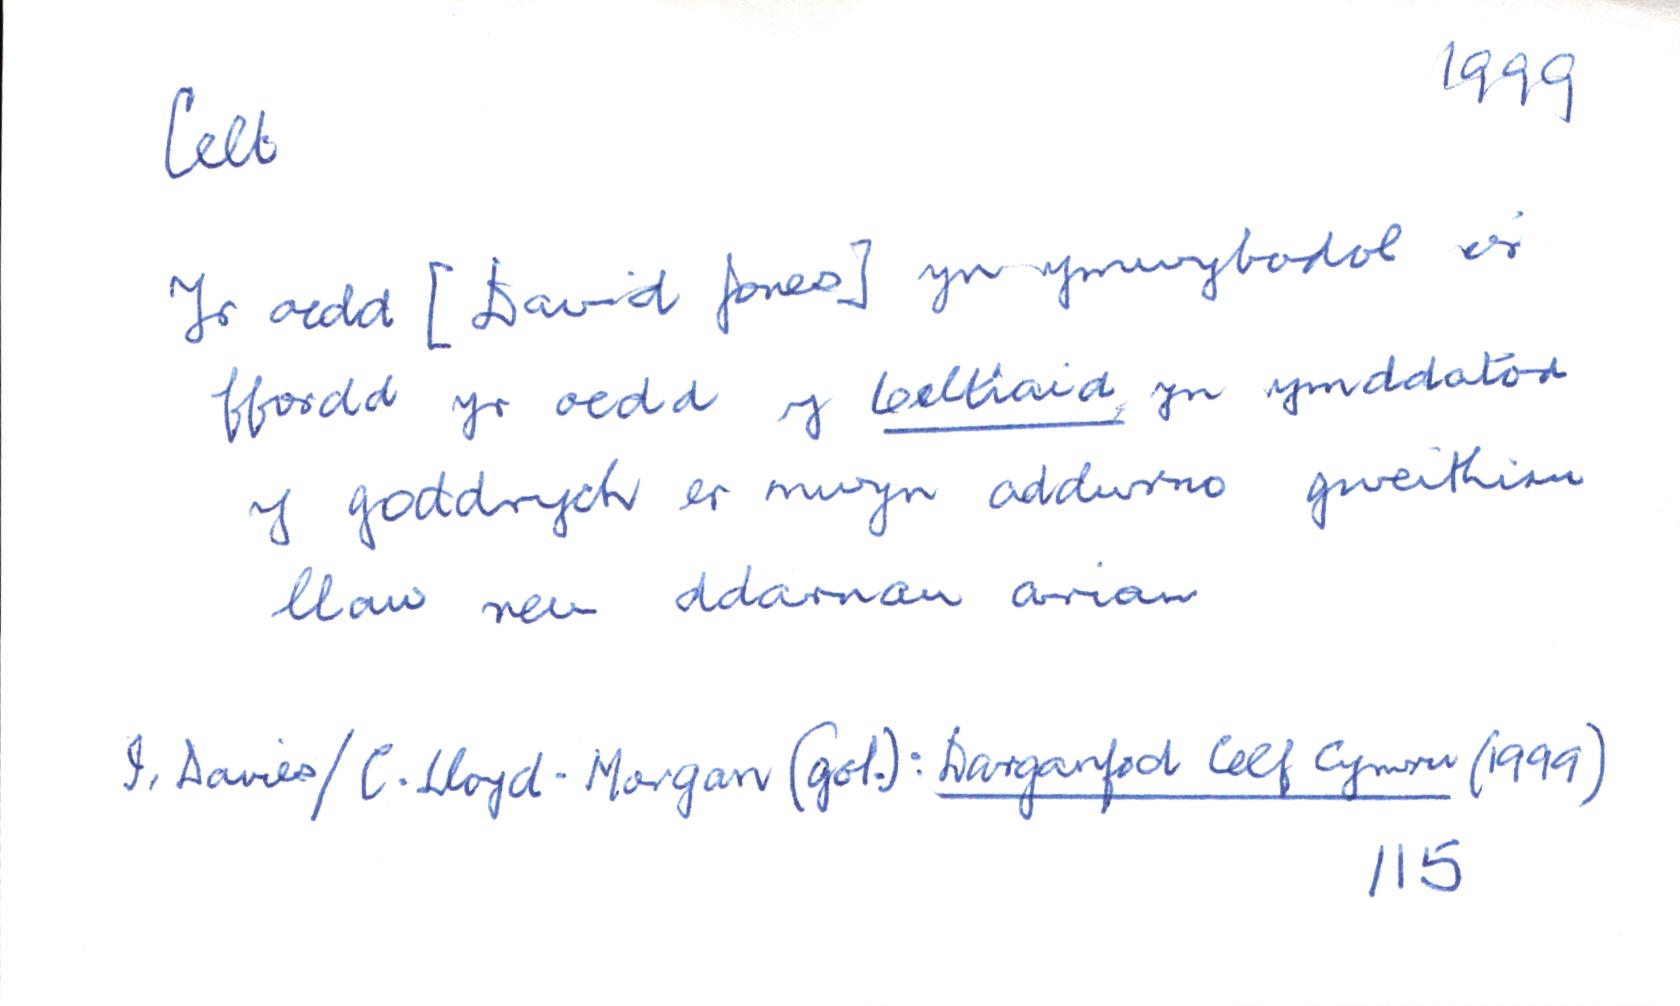 1999
Celt
Yr oedd [David Jones] yn ymwybodol o'r
ffordd yr oedd y Celtiaid yn ymddatod
y goddrych er mwyn addurno gweithiau
llaw neu ddarnau arian
I. Davies/C. Lloyd-Morgan (gol.): Darganfod Celf Cymru (1999)
115